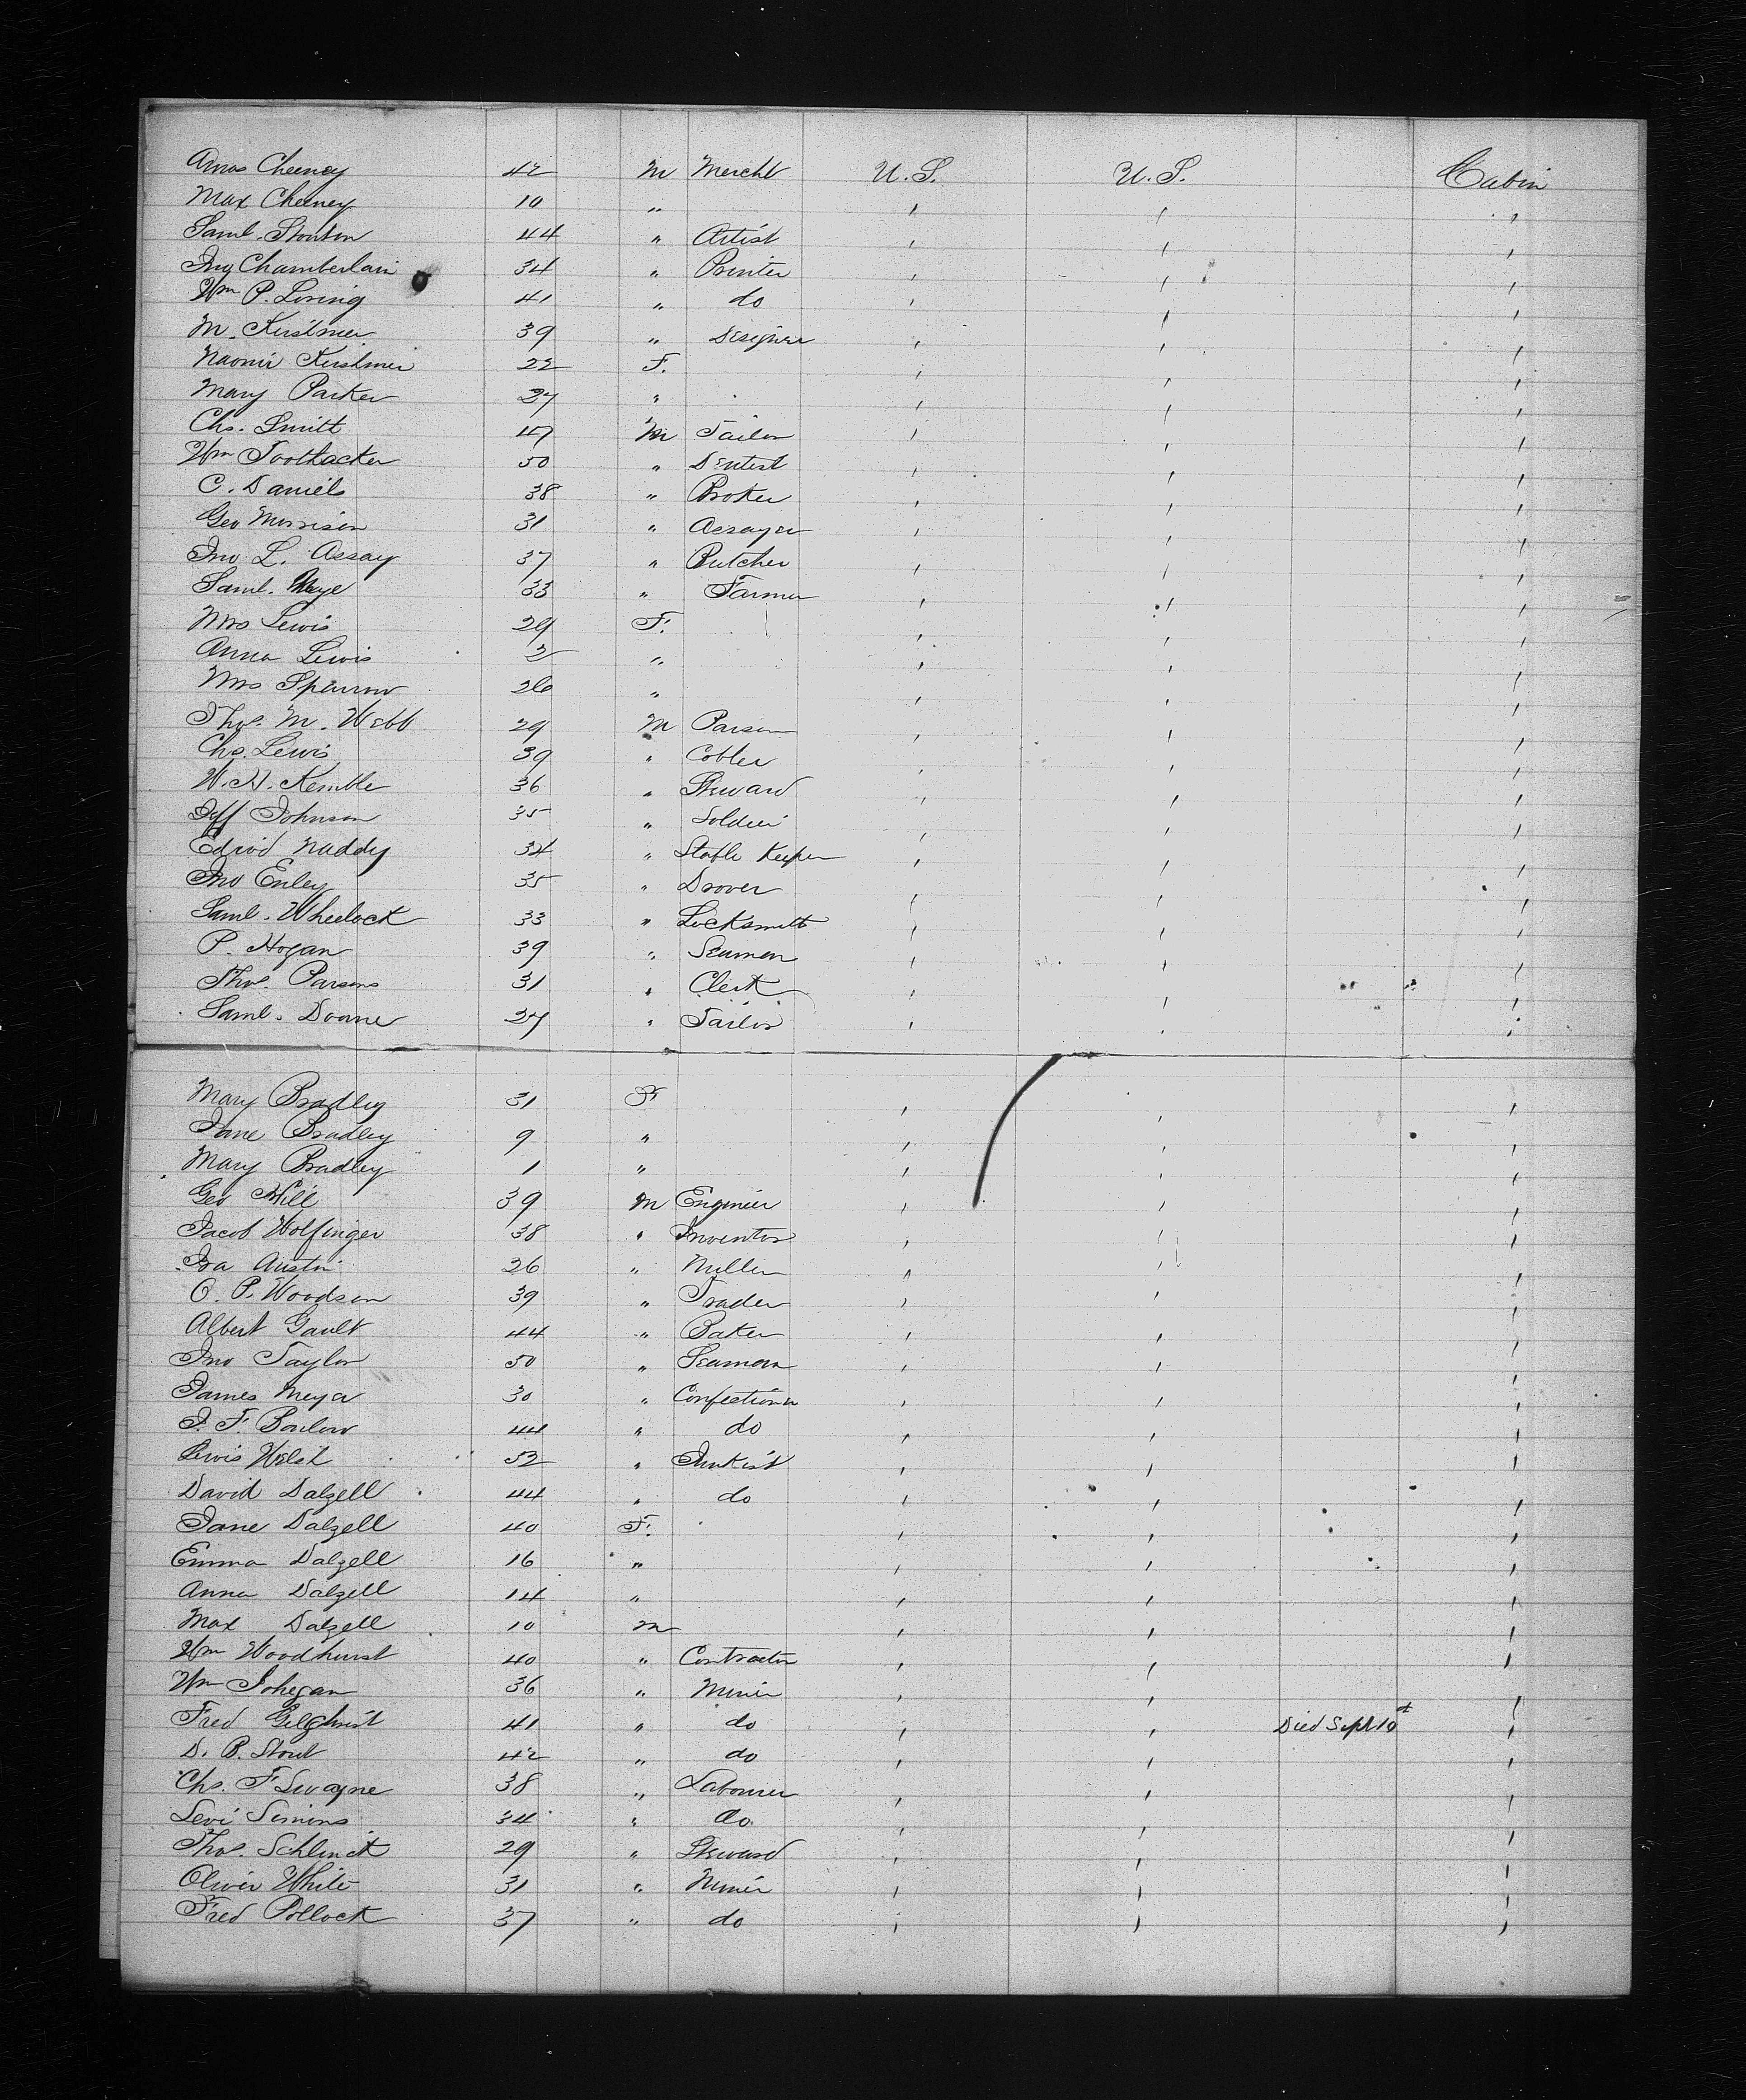 Amos Cheeney 42 M Mercht U.S. U.S. Cabin
Max Cheeney 10 " " " "
Saml. Stouton 44 " Artist " " "
Jno Chamberlain 34 " Printer " " "
Wm P. Loring 41 " do " " "
M. Kushmer 39 " Designer " " "
Naomi Kushmer 22 F. " " "
Mary Parker 27 " " " "
Chs. Smitt 47 M Tailor " " "
Wm Toothacker 50 " Dentist " " "
C. Daniels 38 " Broker " " "
Geo Morrison 31 " Assayer " " "
Jno L. Assay 37 " Butcher " " "
Saml. 33 " Farmer " " "
Mrs Lewis 29 F. " " "
Anna Lewis 2 " " " "
Mrs Sparrow 26 " " " "
Thos. M. Webb 29 M Parson " " "
Chs. Lewis 39 " Cobler " " "
W. H. Kemble 36 " Steward " " "
Jeff Johnson 35 " Soldier " " "
Naddy 34 " Stable Keeper " " "
Jno Enley 35 " Drover " " "
Saml. Wheelock 33 " Locksmith " " "
P. Hogan 39 " Seaman " " "
Thos. Parsons 31 " Clerk " " "
Saml. Doane 27 " Tailor " " "
Mary Bradley 31 F " " "
Jane Bradley 9 " " " "
Mary Bradley 1 " " " "
Geo Hill 39 M Engineer " " "
Jacob Wolfinger 38 " Inventor " " "
Ira Austin 26 " Miller " " "
O. P. Woodson 39 " Trader " " "
Albert Gault 44 " Baker " " "
Jno Taylor 50 " Seaman " " "
James Meyer 30 " Confectioner " " "
J. F. Barlow 44 " do " " "
Lewis Welsh 52 " Junkist " " "
David Dalzell 44 " do " " "
Jane Dalzell 40 F. " " "
Emma Dalzell 16 " " " "
Anna Dalzell 14 " " " "
Max Dalzell 10 M " " "
Wm Woodhurst 40 " Contractor " " "
Wm Johegan 36 " Miner " " "
Fred Gilchrist 41 " do " " Died Sept 10th "
D. B. Stout 42 " do " " "
Chs. F Swayne 38 " Labourer " " "
Levi Simins 34 " do " " "
Thos. Schlinck 29 " Steward " " "
Oliver White 31 " Miner " " "
Fred Pollock 37 " do " " "